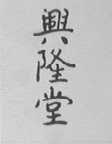 興隆堂